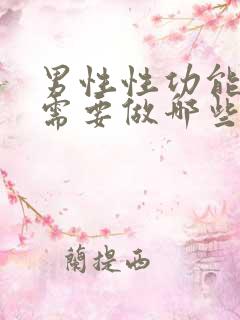 男性性功能
需要做哪些
蘭提西